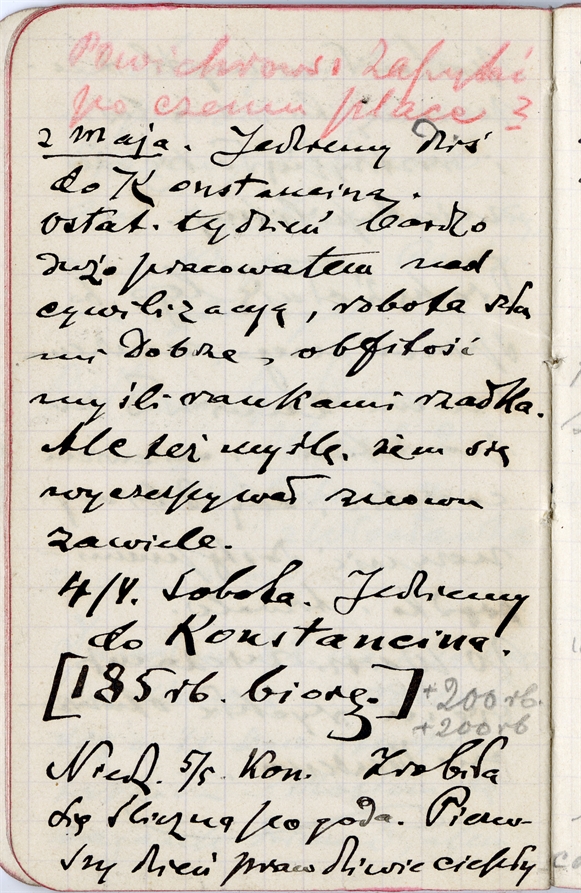 zapytać
po czemu płacę?
2 maja. Jedziemy dziś
do Konstancina.
Ostat. tydzień bardzo
dużo pracowałem nad
cywilizacyą, robota szła
mi dobrze, obfitość
myśli rankami rzadka.
Ale też myślę, żem się
wyczerpywał znowu
zawiele.
4/V. Sobota. Jedziemy
do Konstancina.
[185 rb. biorę.] +200 rb.
+200 rb
Niedz. 5/5. Kon. Zrobiła
się śliczna pogoda. Pierw-
szy dzień prawdziwie ciepły